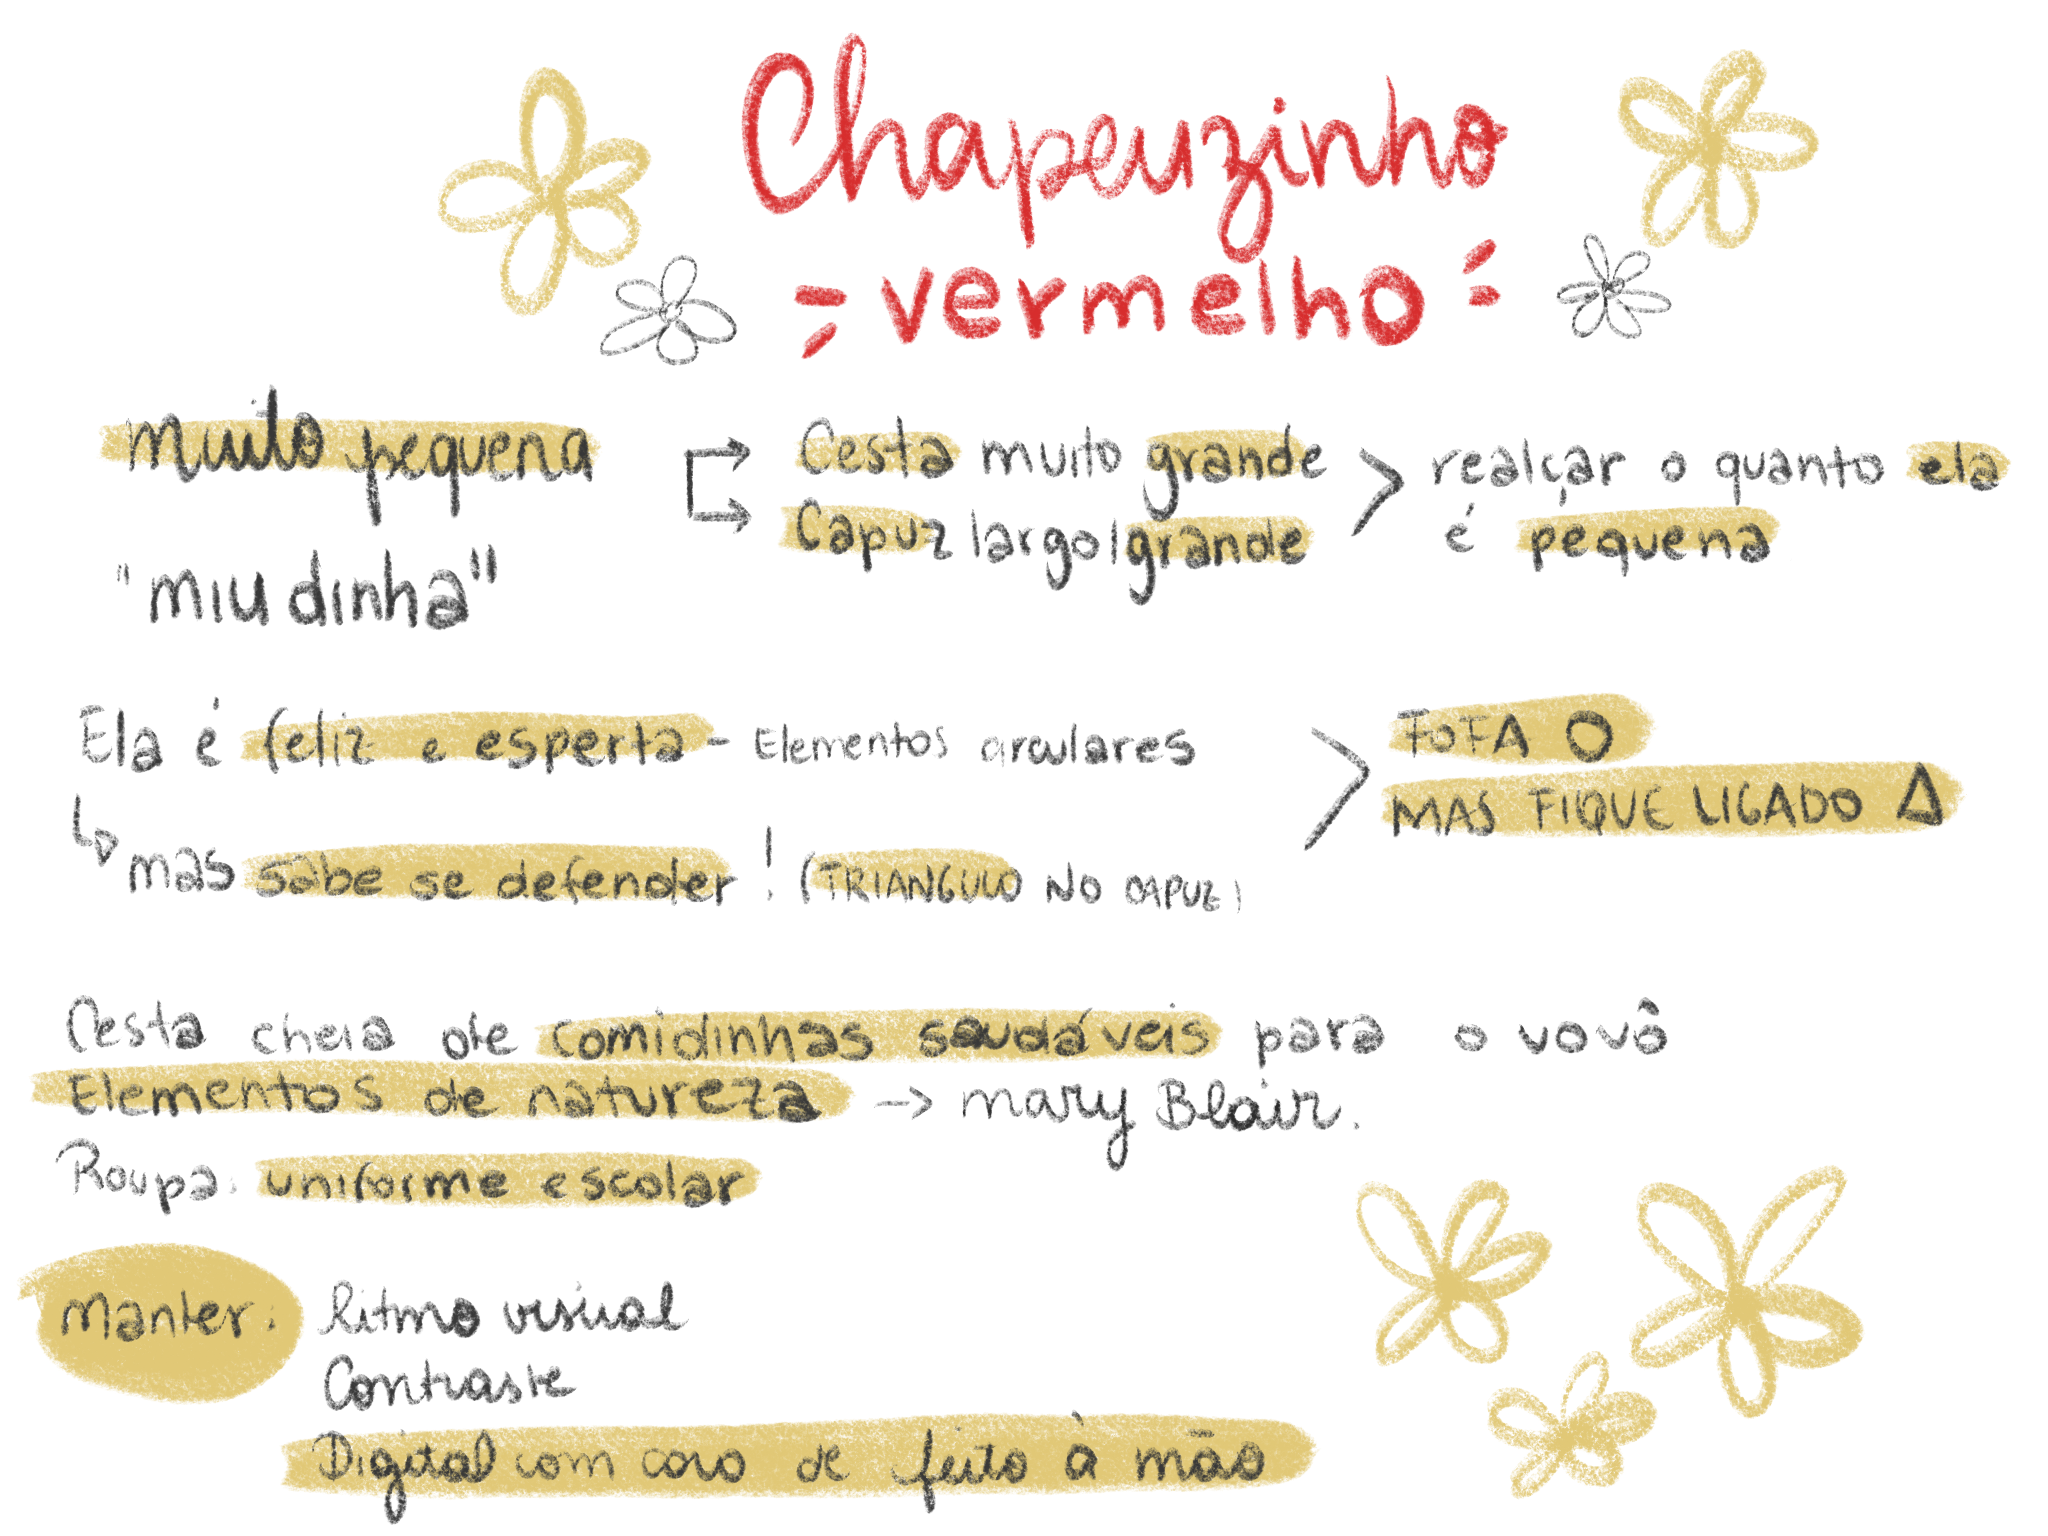 Chapeuzinho
vermelho
Muito pequena
"miudinha"
Cesta muito grande
Capuz largo/grande
realçar o quanto ela
é pequena
Ela é feliz e esperta - Elementos circulares
mas sabe se defender! (TRIANGULO NO CAPUZ)
FOFA O
MAS FIQUE LIGADO Δ
Cesta cheia de comidinhas saudáveis para o vovô
Elementos de natureza -> mary Blair.
Roupa: uniforme escolar
Manter: Ritmo visual
Contraste
Digital com cara de feito à mão